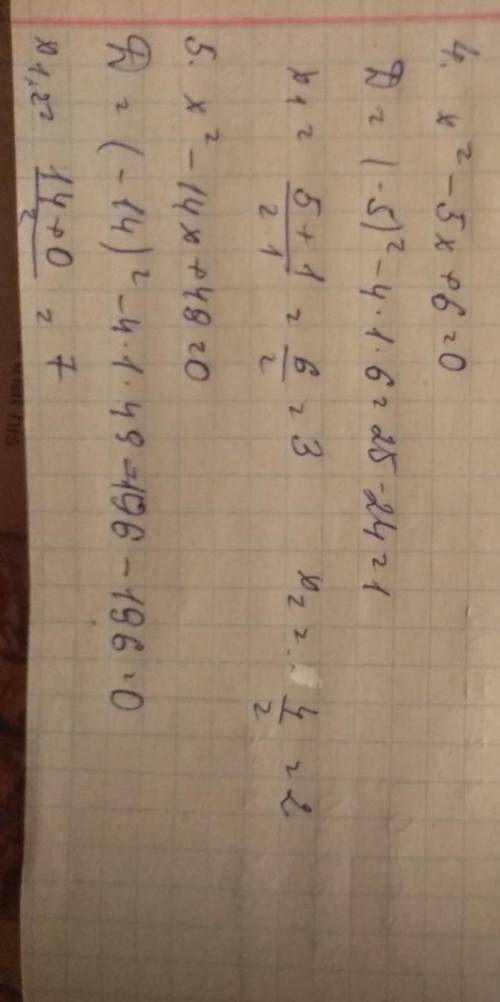 4. x² - 5x + 6 = 0
D = (-5)² - 4·1·6 = 25 - 24 = 1
x₁ = 5+1/2·1 = 6/2 = 3 x₂ = 4/2 = 2
5. x² - 14x + 49 = 0
D = (-14)² - 4·1·49 = 196 - 196 = 0
x₁,₂ = 14+0/2 = 7